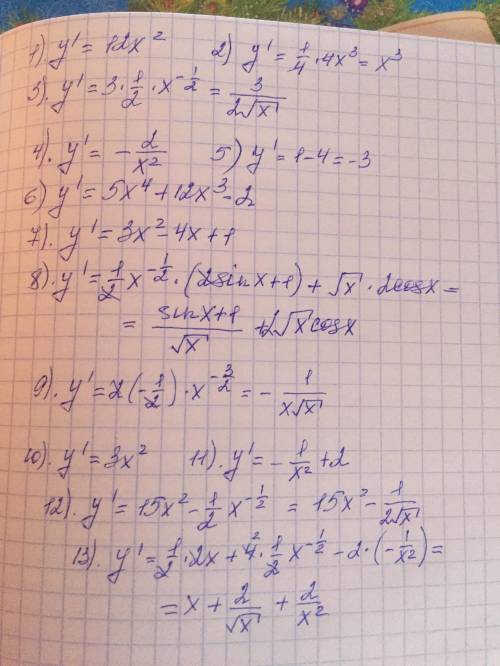 1) y' = 12x² 2) y' = 1/4 · 4x³ = x³
3). y' = 3 · 1/2 · x^(-1/2) = 3/(2√x)
4). y' = - 2/x² 5) y' = 1-4 = -3
6) y' = 5x⁴ + 12x³ - 2
7). y' = 3x² - 4x + 1
8). y' = 1/2 x^(-1/2) · (2sinx+1) + √x · 2cosx =
= (sinx+1)/√x + 2√x cosx
9). y' = 2(-1/2) · x^(-3/2) = - 1/(x√x)
10). y' = 3x² 11). y' = - 1/x² + 2
12). y' = 15x² - 1/2 x^(-1/2) = 15x² - 1/(2√x)
13). y' = 1/2 · 2x + 4² · 1/2 x^(-1/2) - 2 · (- 1/x²) =
= x + 2/√x + 2/x²